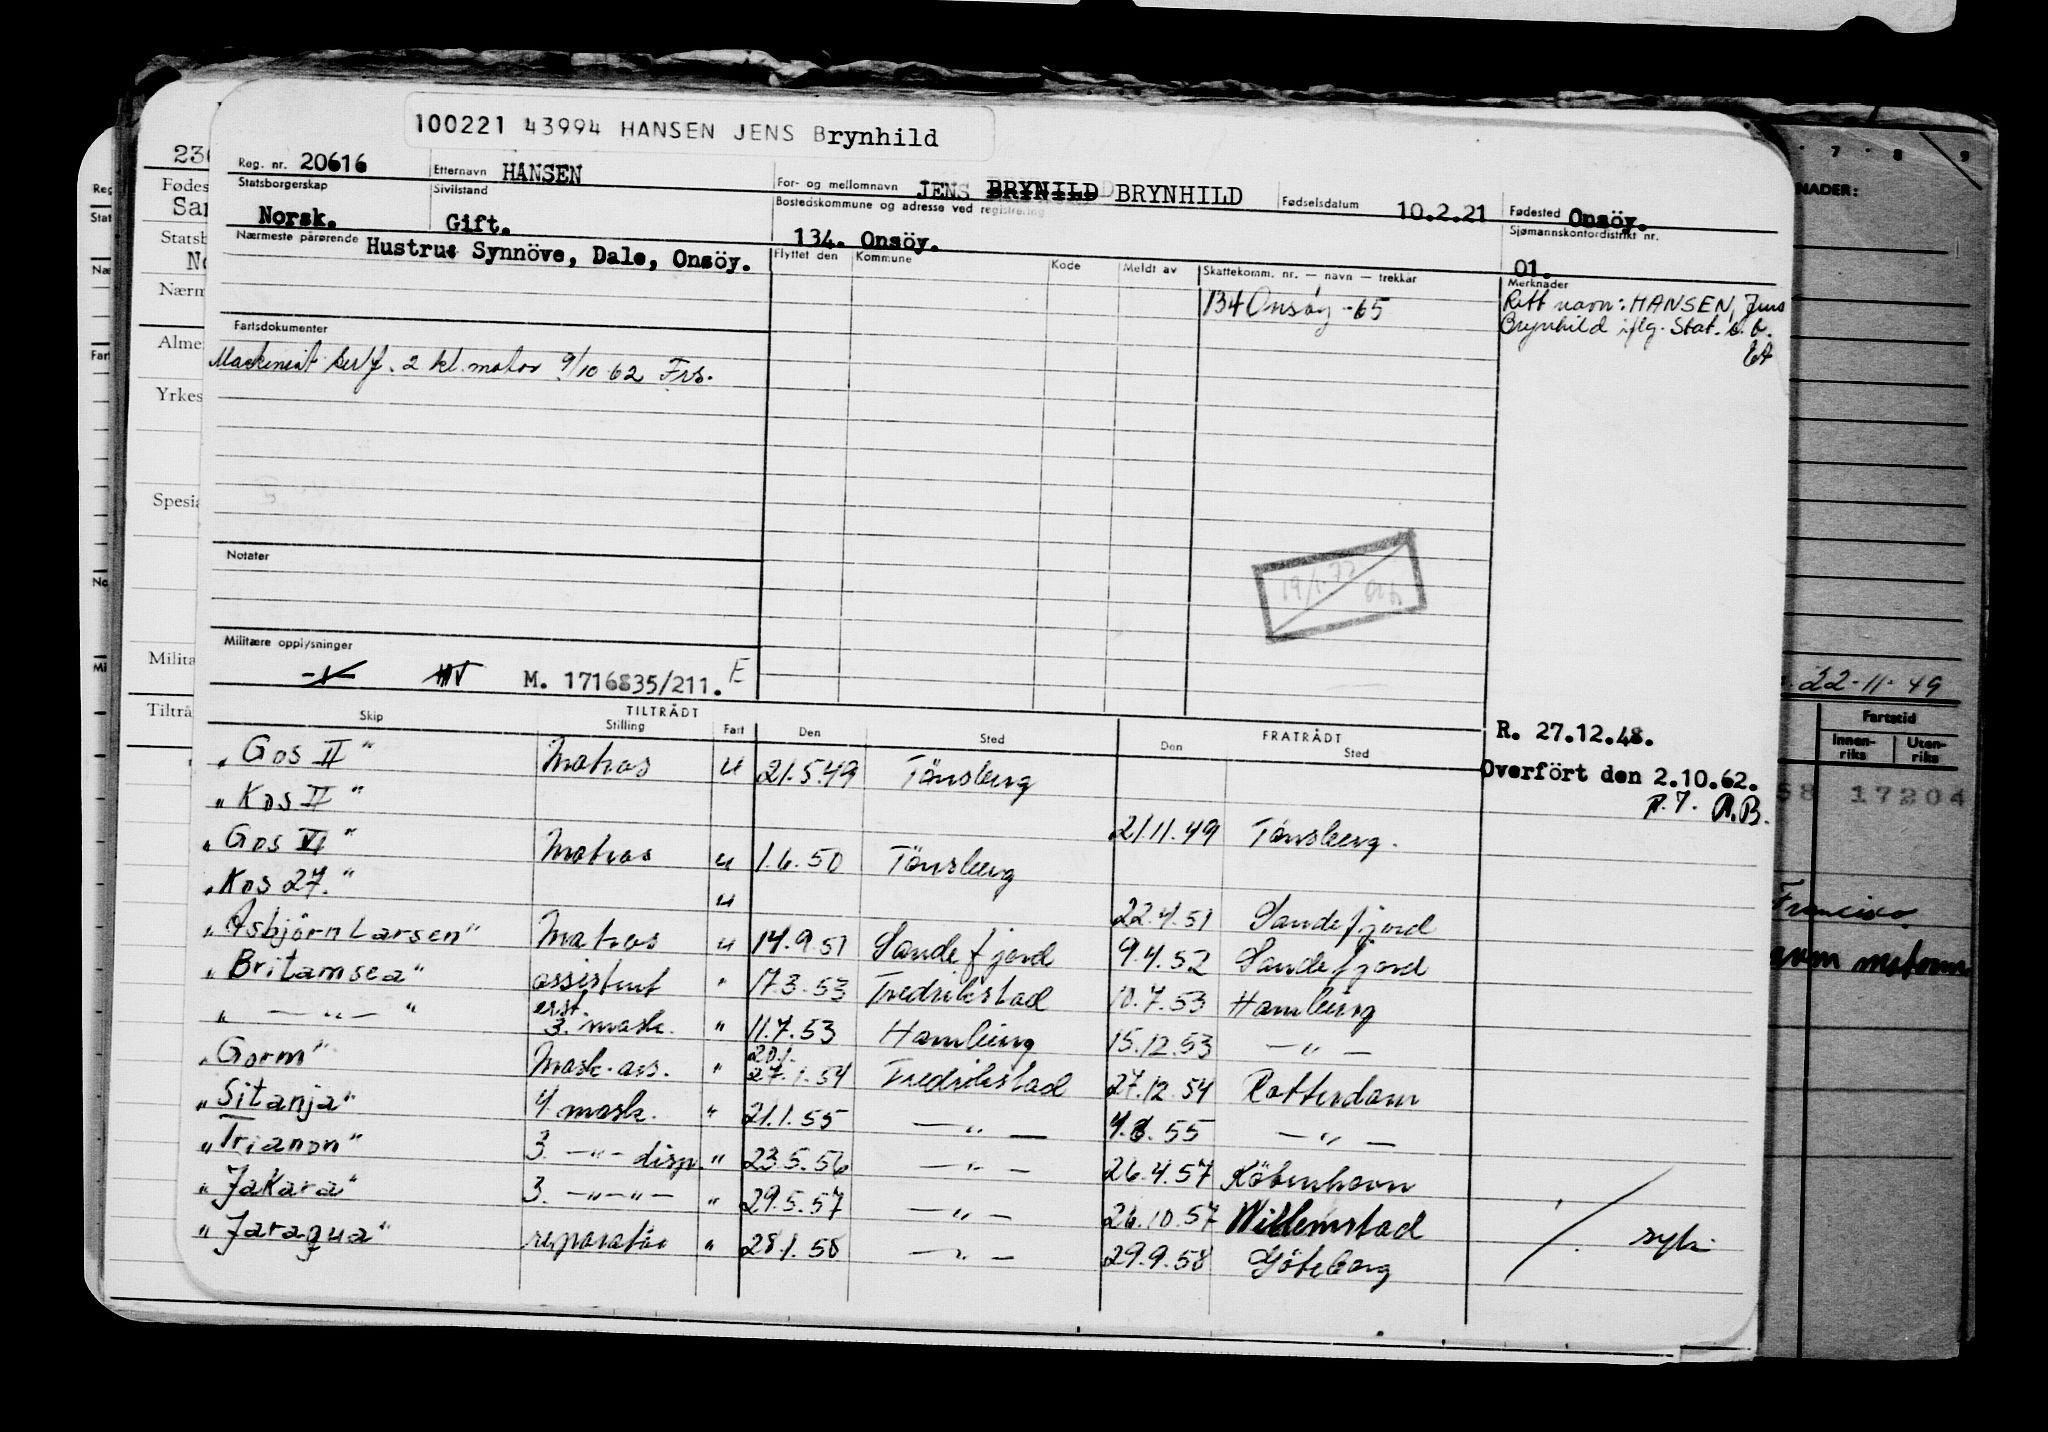 100221 43994 HANSEN JENS Brynhild
Reg. nr. 20616 Etternavn HANSEN For- og mellomnavn JENS BRYNILD BRYNHILD Fødselsdatum 10.2.21 Fødested Onsöy.
Statsborgerskap Norsk. Sivilstand Gift. Bostedskommune og adresse ved registrering 134. Onsöy. Sjømannskontordistrikt nr. 01.
Nærmeste pårørende Hustru: Synnöve, Dale, Onsöy. Flyttet den Kommune Kode Meldt av Skattekomm. nr. — navn — trekkår Merknader
134 Onsöy -65
Rett navn: HANSEN, Jens
Brynhild iflg. Stat. s. b.
Fartsdokumenter
Maskinist sert. 2 kl. motor 9/10 62 Frs.
Notater
19/1.72
Militære opplysninger
M. 1716835/211. E
TILTRÅDT FRATRÅDT
Skip Stilling Fart Den Sted Den Sted
R. 27.12.48.
Overfört den 2.10.62.
A.B.
„Gos II" Matros u 21.5.49 Tönsberg
„Kos II" 21.11.49 Tönsberg.
„Gos VI" Matros u 1.6.50 Tönsberg
„Kos 27." u 22.4.51 Sandefjord
„Asbjörn Larsen" Matros u 14.9.51 Sandefjord 9.4.52 Sandefjord
„Britamsea" assistent " 17.3.53 Fredrikstad 10.7.53 Hamburg
„ — „ — " 3. mask. " 11.7.53 Hamburg 15.12.53 — „ —
„Gorm" Mask. ass. " 20.1. 27.1.54 Fredrikstad 27.12.54 Rotterdam
„Sitanja" 4 mask. " 21.1.55 — „ — 4.8.55 — „ —
„Trianon" 3. — „ — disp. " 23.5.56 — „ — 26.4.57 Köbenhavn
„Jakara" 3. — „ — „ — " 29.5.57 — „ — 26.10.57 Willemstad syk
„Jaragua" reparatör " 28.1.58 — „ — 29.9.58 Göteborg
7 8 9
NADER:
22-11-49
Fartstid
Innen-riks Uten-riks
58 17204
Francisco